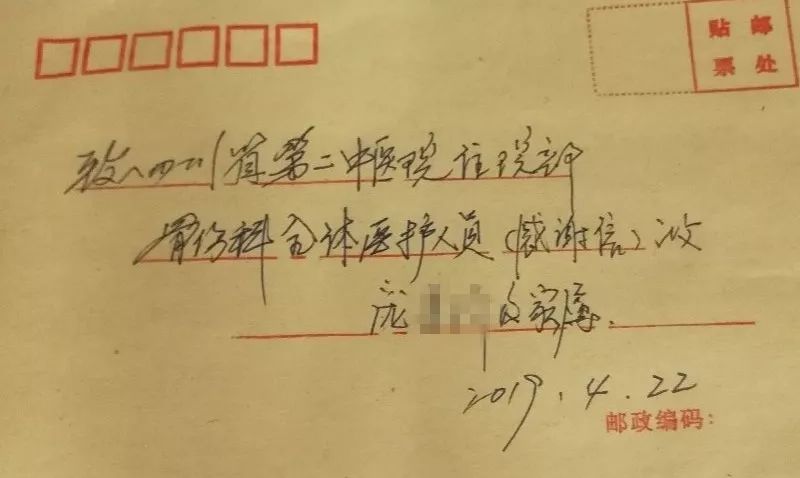 贴邮
票处
致四川省第二中医院住院部
骨伤科全体医护人员(感谢信)收
及家属.
2019.4.22
邮政编码: